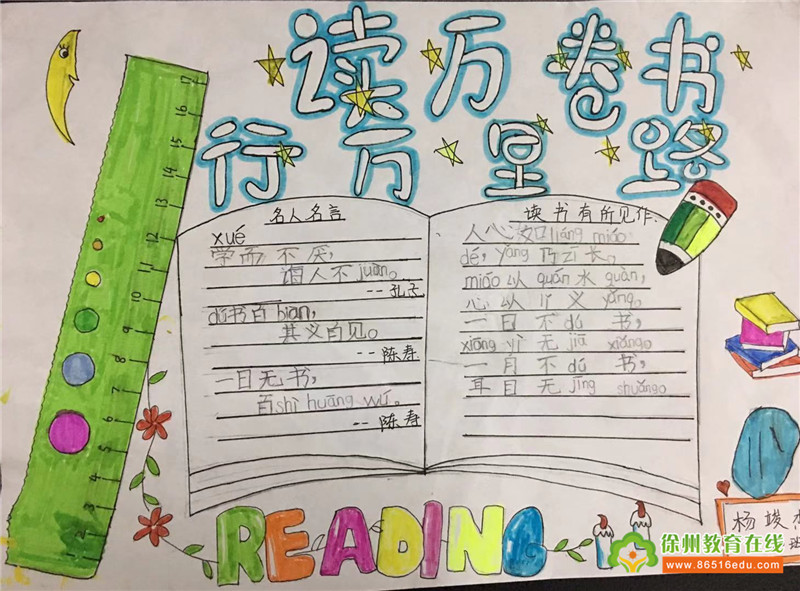 读万卷书
行万里路
名人名言
xué
学而不厌，
诲人不juàn。
--孔子
dú书百biàn，
其义自见。
--陈寿
一日无书，
百shì huāng wú。
--陈寿
读书有所见作
人心如liáng miáo
dé，yǎng 乃 zī 长。
miáo 以 quán 水 guàn，
心以 lǐ 义 yǎng。
一日不dú书，
xiōng yì 无 jiā xiǎng。
一月不dú书，
耳目无jīng shuǎng。
READING
杨竣
班
徐州教育在线
www.86516edu.com
17
16
15
14
13
12
11
10
9
8
7
6
5
4
3
2
1